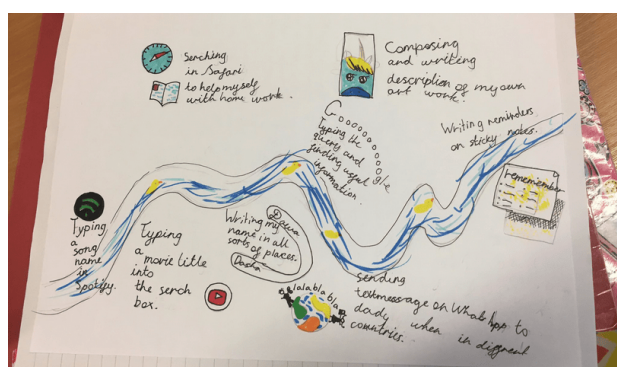 Serching
in Safari
to help myself
with home work.
Composing
and writing
description of my own
art work.
Writing reminders
on sticky notes.
Goooooooogle
Typing the
query and
finding useful
information.
rememember
Typing
a
song
name
in
Spotify.
Typing
a movie title
into
the serch
box.
Writing my
name in all
sorts of places.
Dasha
blablablabla
sending
textmessage on Whatsapp to
dady when in different
countries.